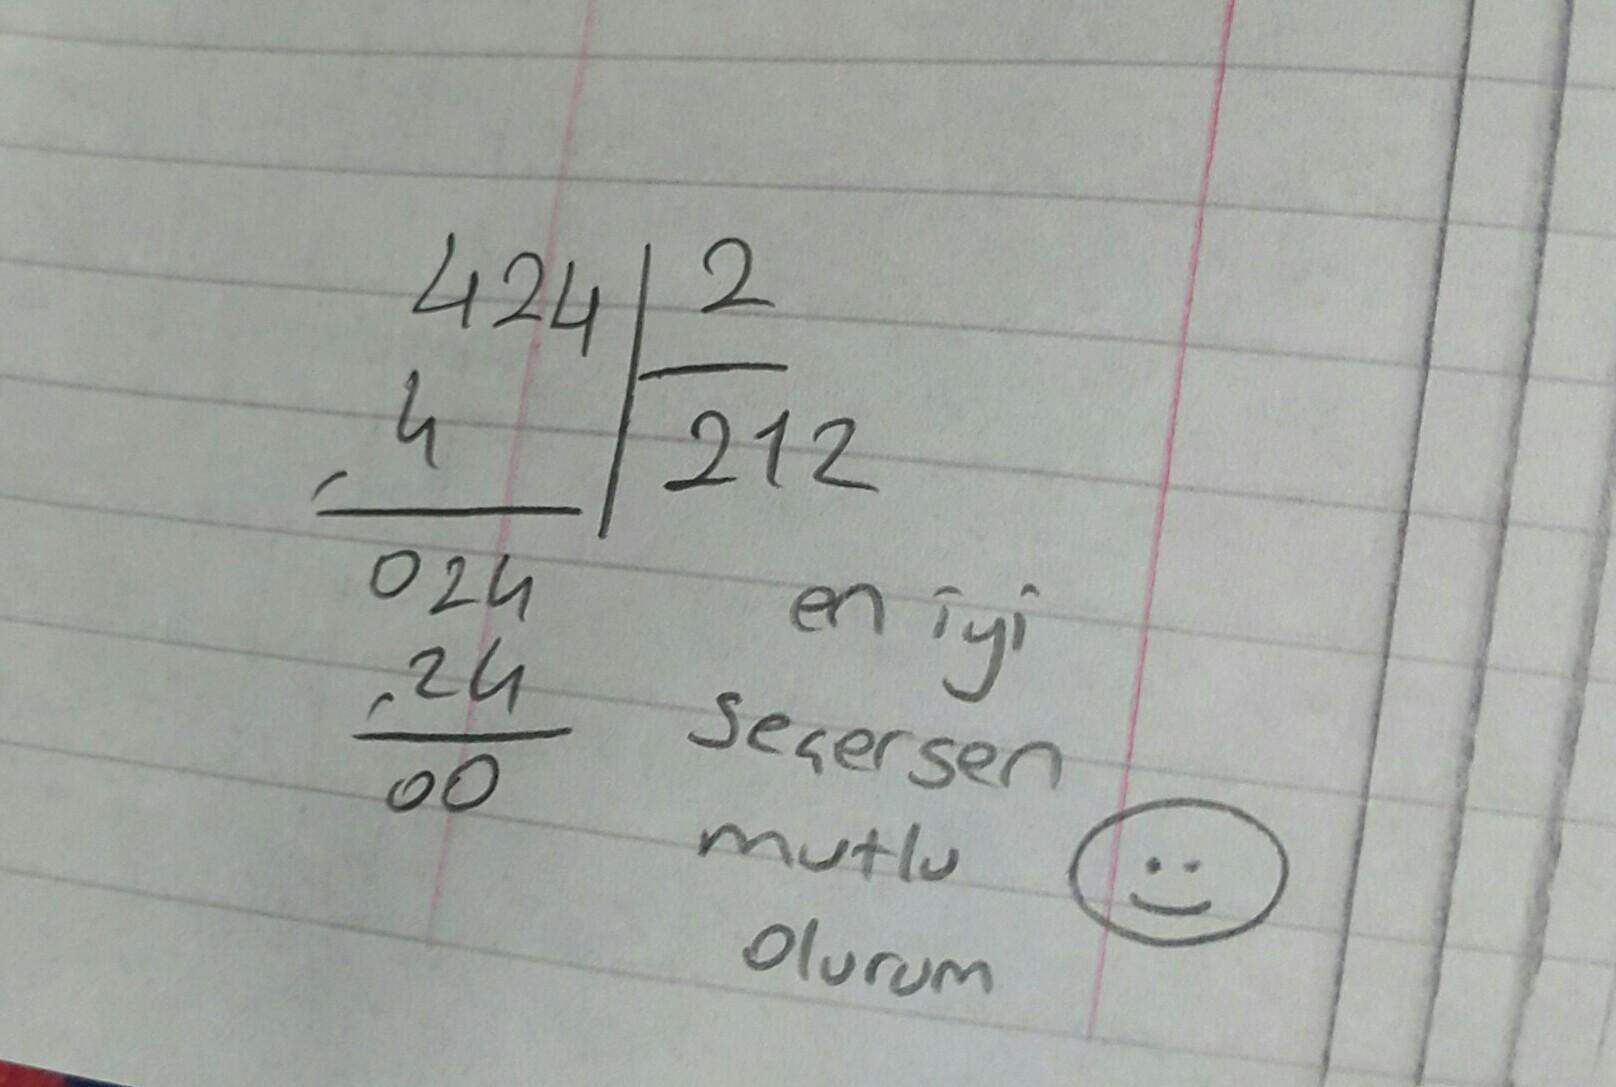 424 2
4 212
024
24
00
en iyi
seçersen
mutlu
olurum